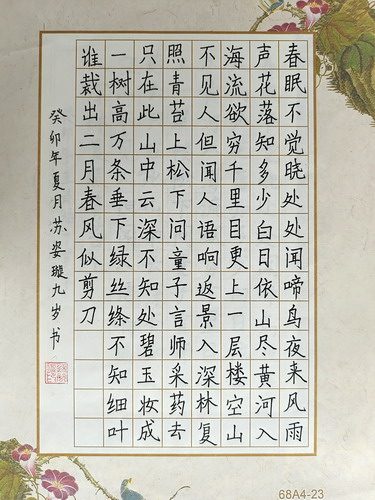 春眠不觉晓处处闻啼鸟夜来风雨
声花落知多少白日依山尽黄河入
海流欲穷千里目更上一层楼空山
不见人但闻人语响返景入深林复
照青苔上松下问童子言师采药去
只在此山中云深不知处碧玉妆成
一树高万条垂下绿丝绦不知细叶
谁裁出二月春风似剪刀
癸卯年夏月苏姿璇九岁书
68A4-23